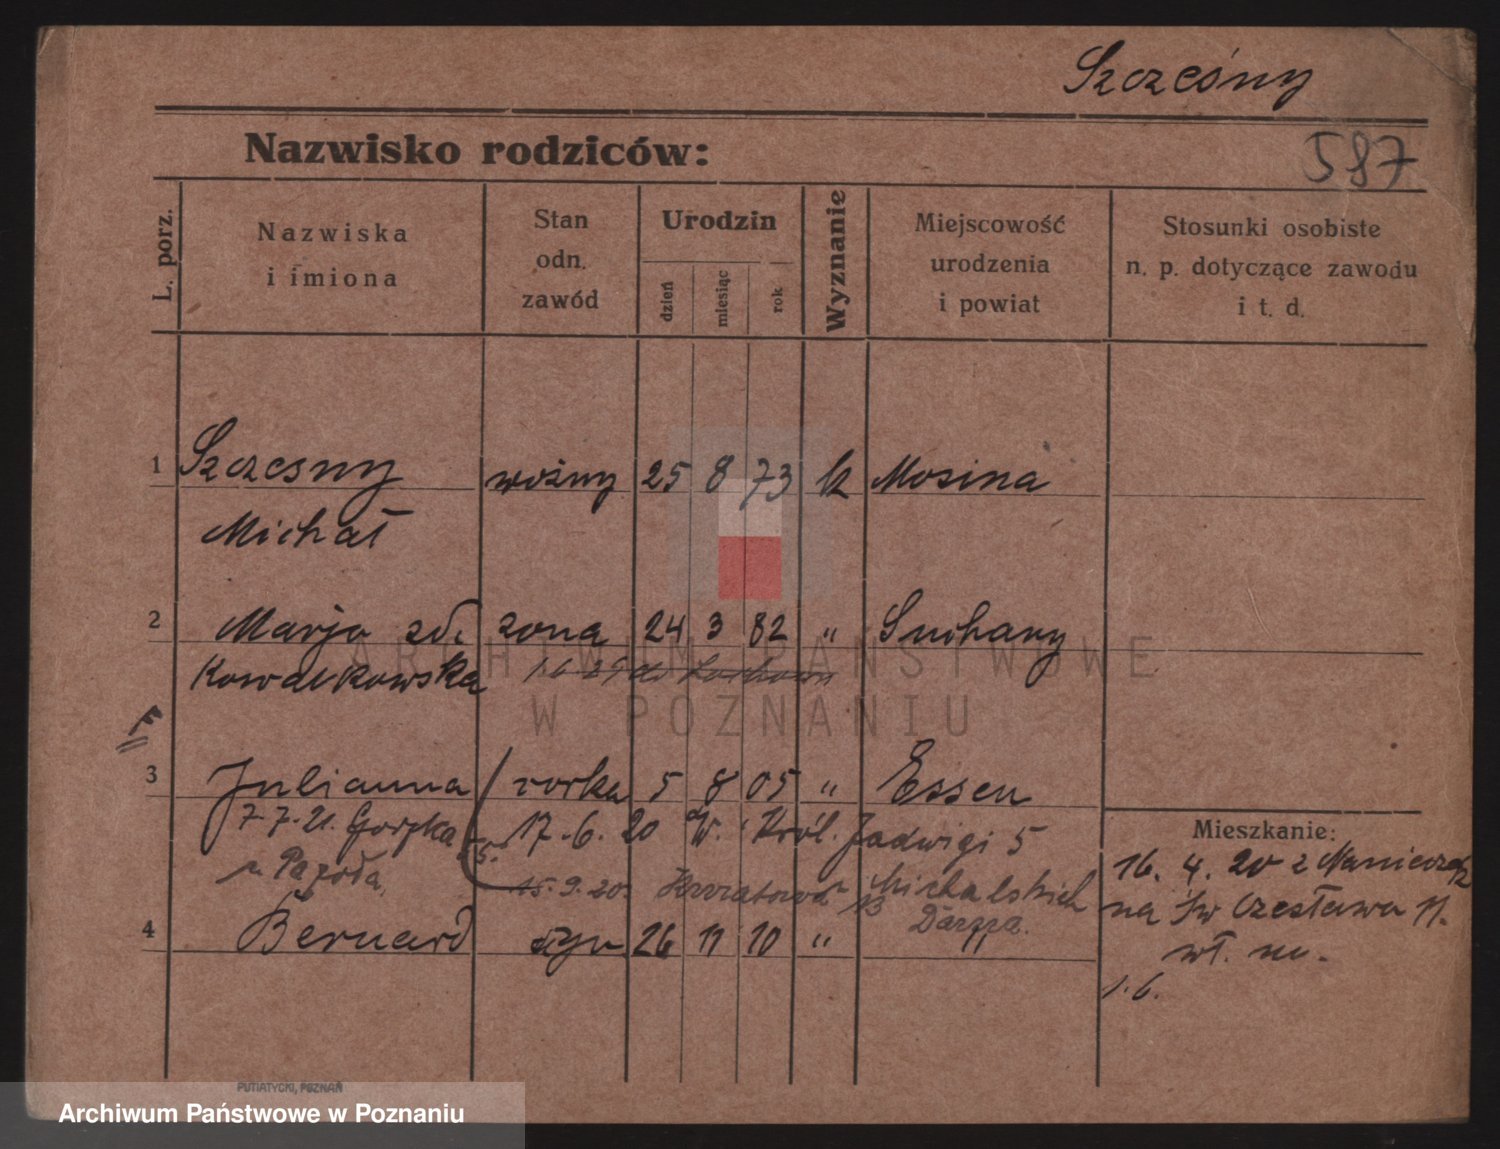 Szcześny
587
Nazwisko rodziców:
L. porz.
Nazwiska
i imiona
Stan
odn.
zawód
Urodzin
dzień
miesiąc
rok
Wyznanie
Miejscowość
urodzenia
i powiat
Stosunki osobiste
n. p. dotyczące zawodu
i t. d.
1 Szczesny woźny 25 8 73 k Mosina
Michał
2 Marja zd. zona 24 3 82 " Suchany
Kowalkowska 1.6 29 do
3 Julianna corka 5 8 05 " Essen
7.7.21. Gorzka 17.6.20 W. Król. Jadwigi 5
15.9.20. Michalskich
13
4 Bernard syn 26 11 10 " "
Mieszkanie:
16. 4. 20 z
na Św Czesława 11.
wł.
1.6.
PUTIATYCKI, POZNAŃ
ARCHIWUM PAŃSTWOWE
W POZNANIU
Archiwum Państwowe w Poznaniu